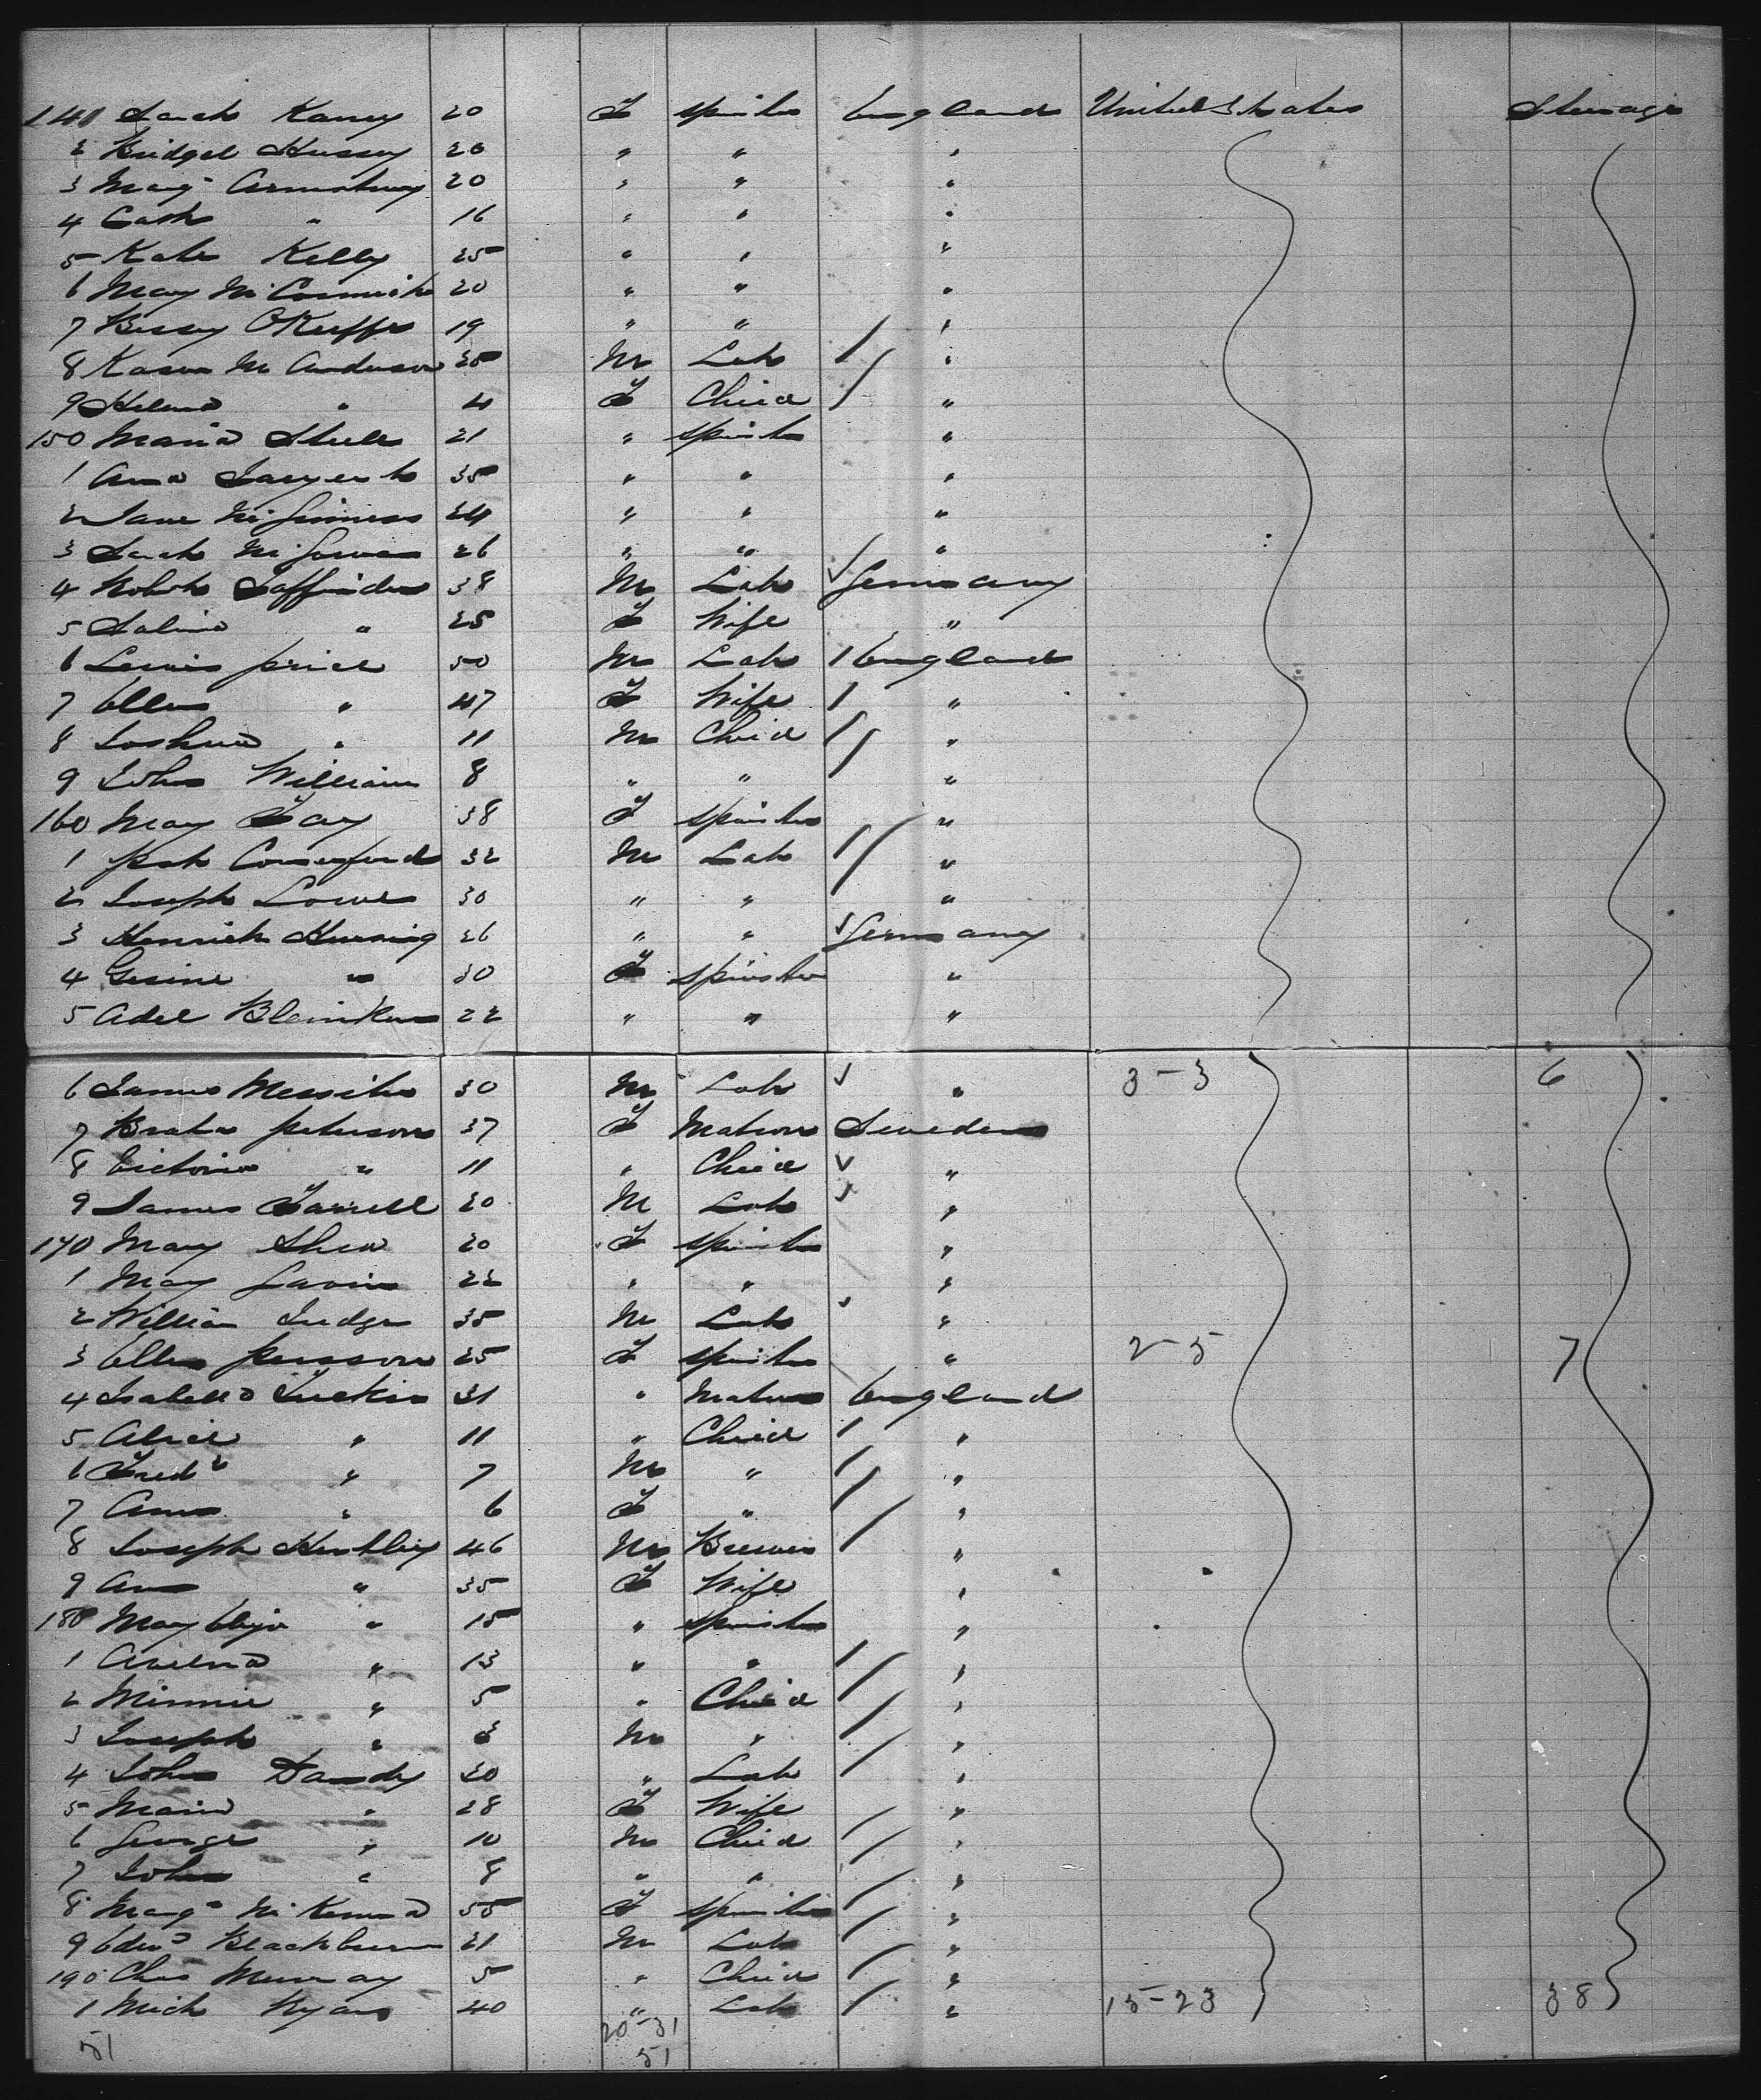 141 Sarah Kanny 20 F Spinster England United States Steerage
2 Bridget Hussey 20 " " "
3 Margt Armstrong 20 " " "
4 Cath " 16 " " "
5 Kate Kelly 25 " " "
6 Mary McCormick 20 " " "
7 Bessy O'Keeffe 19 " " "
8 M Anderson 25 M Lab "
9 " 4 F Child "
150 Maria Steele 21 " Spinster "
1 Ann Sargent 35 " " "
2 Jane McGinness 24 " " "
3 Sarah McGowan 26 " " "
4 38 M Lab Germany
5 " 25 F Wife "
6 Lewis Price 50 M Lab England
7 Ellen " 47 F Wife "
8 Joshua " 11 M Child "
9 John William 8 " " "
160 Mary Fay 38 F Spinster "
1 Comerford 32 M Lab "
2 Joseph Lowe 30 " " "
3 Henrich 26 " " Germany
4 Gesine " 30 F Spinster "
5 Adel 22 " " "
6 James 30 M Lab " 3-3 6
7 Peterson 37 F Matron Sweden
8 Victoria " 11 " Child "
9 James Farrell 20 M Lab "
170 Mary Shea 20 F Spinster "
1 Mary Gavin 22 " " "
2 William Judge 35 M Lab "
3 Ellen Persson 25 F Spinster " 2-5 7
4 Isabella Luckin 31 " Matron England
5 Alice " 11 " Child "
6 Fredk " 7 M " "
7 Ann " 6 F " "
8 Joseph 46 M Brewer "
9 Ann " 35 F Wife "
180 Mary Eliza " 15 " Spinster "
1 " 13 " " "
2 Minnie " 5 " Child "
3 Joseph " 3 M " "
4 John Dandy 30 " Lab "
5 Maria " 28 F Wife "
6 George " 10 M Child "
7 John " 8 " " "
8 Margt McKenna 55 F Spinster "
9 Edwd Blackburn 21 M Lab "
190 Chas Murray 5 " Child "
1 Mich Ryan 40 " Lab " 15-23 38
51 20-31
51